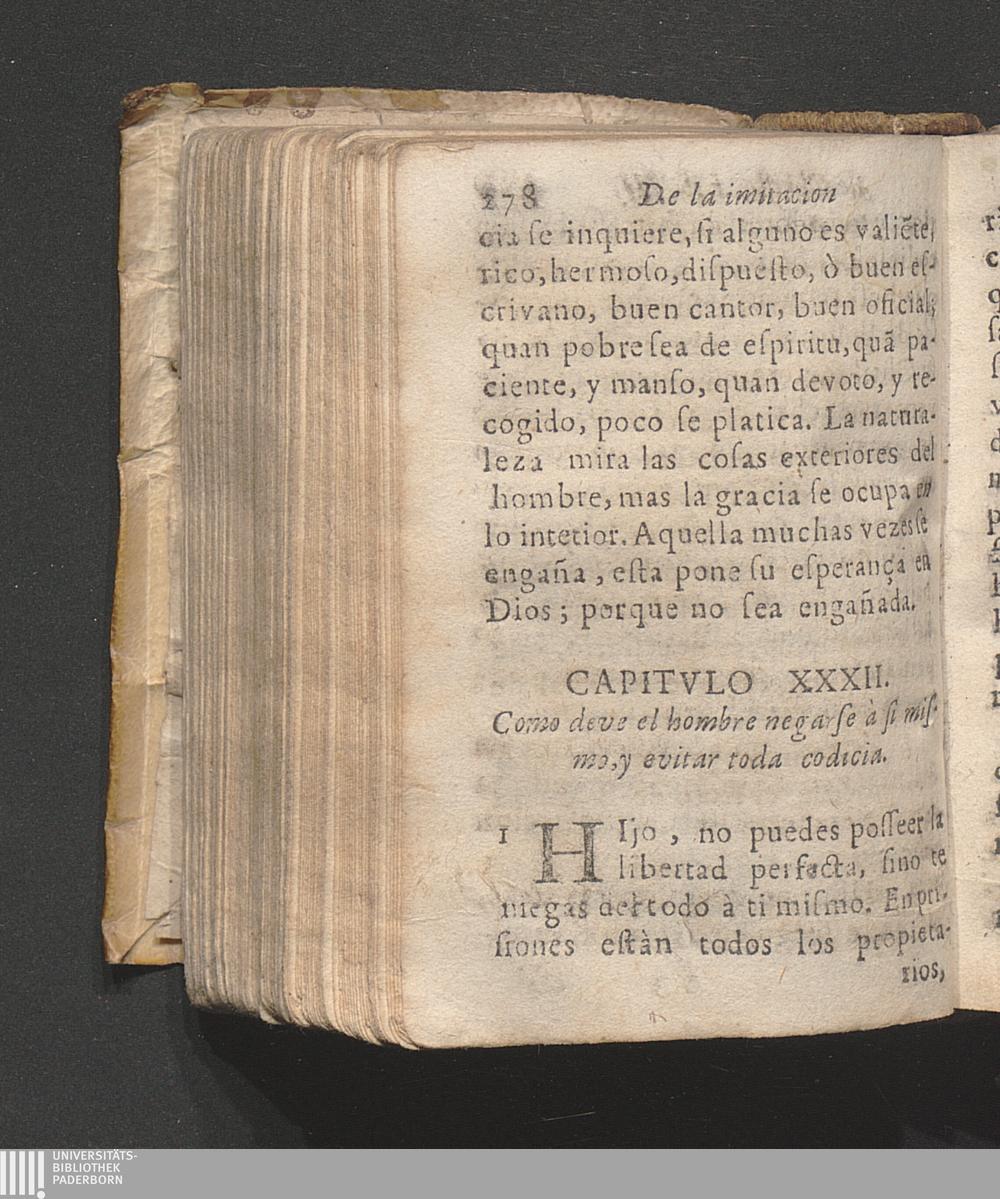 278 De la imitacion
cia ſe inquiere, ſi alguno es valiẽte,
rico, hermoſo, diſpueſto, ò buen eſ-
crivano, buen cantor, buen oficial;
quan pobre ſea de eſpiritu, quã pa-
ciente, y manſo, quan devoto, y re-
cogido, poco ſe platica. La natura-
leza mira las coſas exteriores del
hombre, mas la gracia ſe ocupa en
lo intetior. Aquella muchas vezes ſe
engaña, eſta pone ſu eſperança en
Dios; porque no ſea engañada.
CAPITVLO XXXII.
Como deve el hombre negarſe à ſi miſ-
mo, y evitar toda codicia.
1 HIjo, no puedes poſſeer la
libertad perfecta, ſino te
niegas del todo à ti miſmo. En pri-
ſiones eſtàn todos los propieta-
rios,
UNIVERSITÄTS-
BIBLIOTHEK
PADERBORN